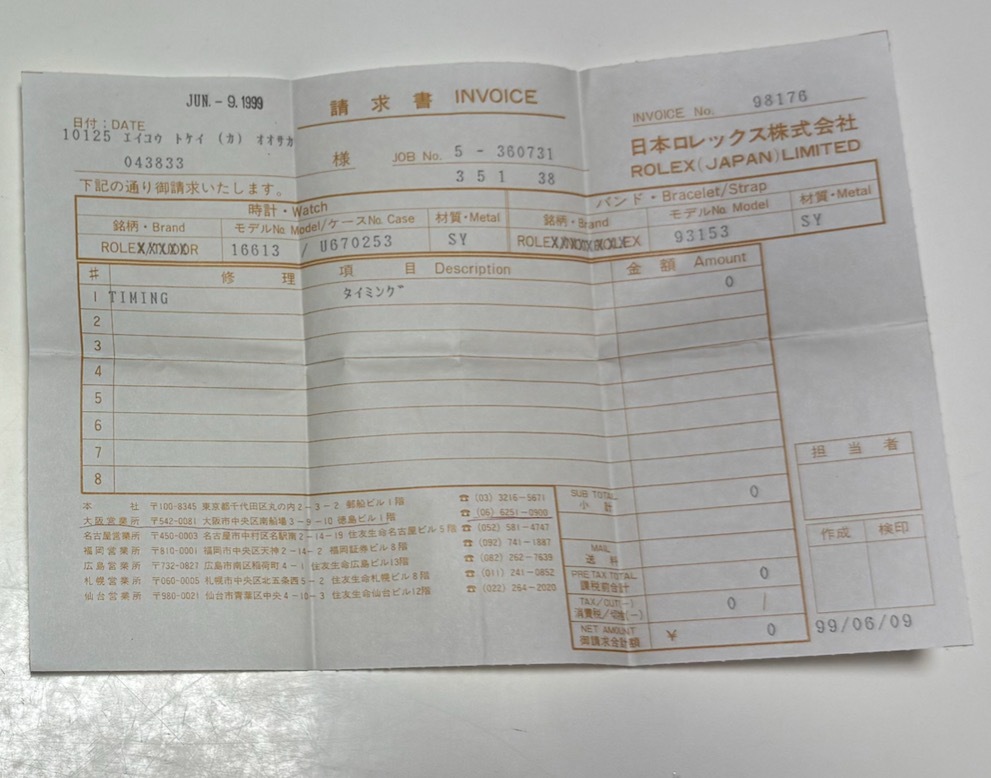 JUN. - 9. 1999
請求書 INVOICE
INVOICE No. 98176
日付:DATE
10125 エイコウ トケイ (カ) オオサカ
043833
様
JOB No. 5 - 360731
351 38
日本ロレックス株式会社
ROLEX(JAPAN)LIMITED
下記の通り御請求いたします。
時計・Watch
バンド・Bracelet/Strap
銘柄・Brand モデル№ Model/ケース№ Case 材質・Metal 銘柄・Brand モデル№ Model 材質・Metal
16613 / U670253 SY 93153 SY
# 修理項目 Description 金額 Amount
1 TIMING タイミング 0
2
3
4
5
6
7
8
本社 〒100-8345 東京都千代田区丸の内2-3-2 郵船ビル1階 ☎ (03) 3216-5671
大阪営業所 〒542-0081 大阪市中央区南船場3-9-10 徳島ビル1階 ☎ (06) 6251-0900
名古屋営業所 〒450-0003 名古屋市中村区名駅南2-14-19 住友生命名古屋ビル5階 ☎ (052) 581-4747
福岡営業所 〒810-0001 福岡市中央区天神2-14-2 福岡証券ビル8階 ☎ (092) 741-1887
広島営業所 〒732-0827 広島市南区稲荷町4-1 住友生命広島ビル13階 ☎ (082) 262-7639
札幌営業所 〒060-0005 札幌市中央区北五条西5-2 住友生命札幌ビル8階 ☎ (011) 241-0852
仙台営業所 〒980-0021 仙台市青葉区中央4-10-3 住友生命仙台ビル12階 ☎ (022) 264-2020
SUB TOTAL
小計 0
MAIL
送料
PRE TAX TOTAL
課税前合計 0
TAX/CUT(-)
消費税/切捨(-) 0 /
NET AMOUNT
御請求合計額 ¥ 0
担当者
作成 検印
99/06/09